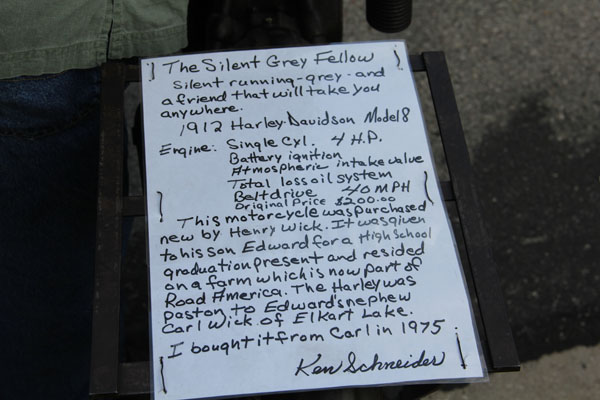 The Silent Grey Fellow
Silent running-grey-and
a friend that will take you
anywhere.
1912 Harley-Davidson Model 8
Engine: Single Cyl. 4 H.P.
Battery ignition
Atmospheric intake valve
Total loss oil system
Belt drive 40 MPH
Original Price $200.00
This motorcycle was purchased
new by Henry Wick. It was given
to his son Edward for a High School
graduation present and resided
on a farm which is now part of
Road America. The Harley was
paston to Edward's nephew
Carl Wick of Elkart Lake.
I bought it from Carl in 1975
Ken Schneider